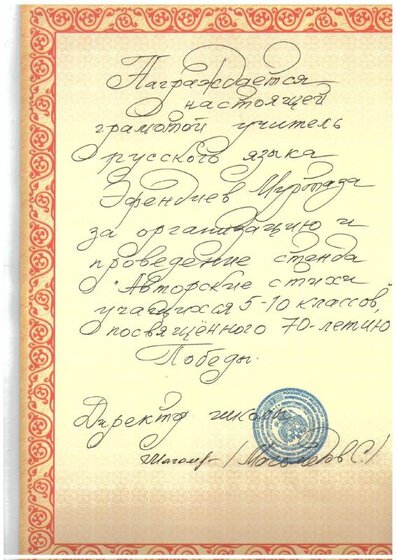 Награждается
настоящей
грамотой учитель
русского языка
Эфендиев Муртаза
за организацию и
проведение стенда
"Авторские стихи
учащихся 5-10 классов",
посвящённого 70-летию
Победы.
Директор школы